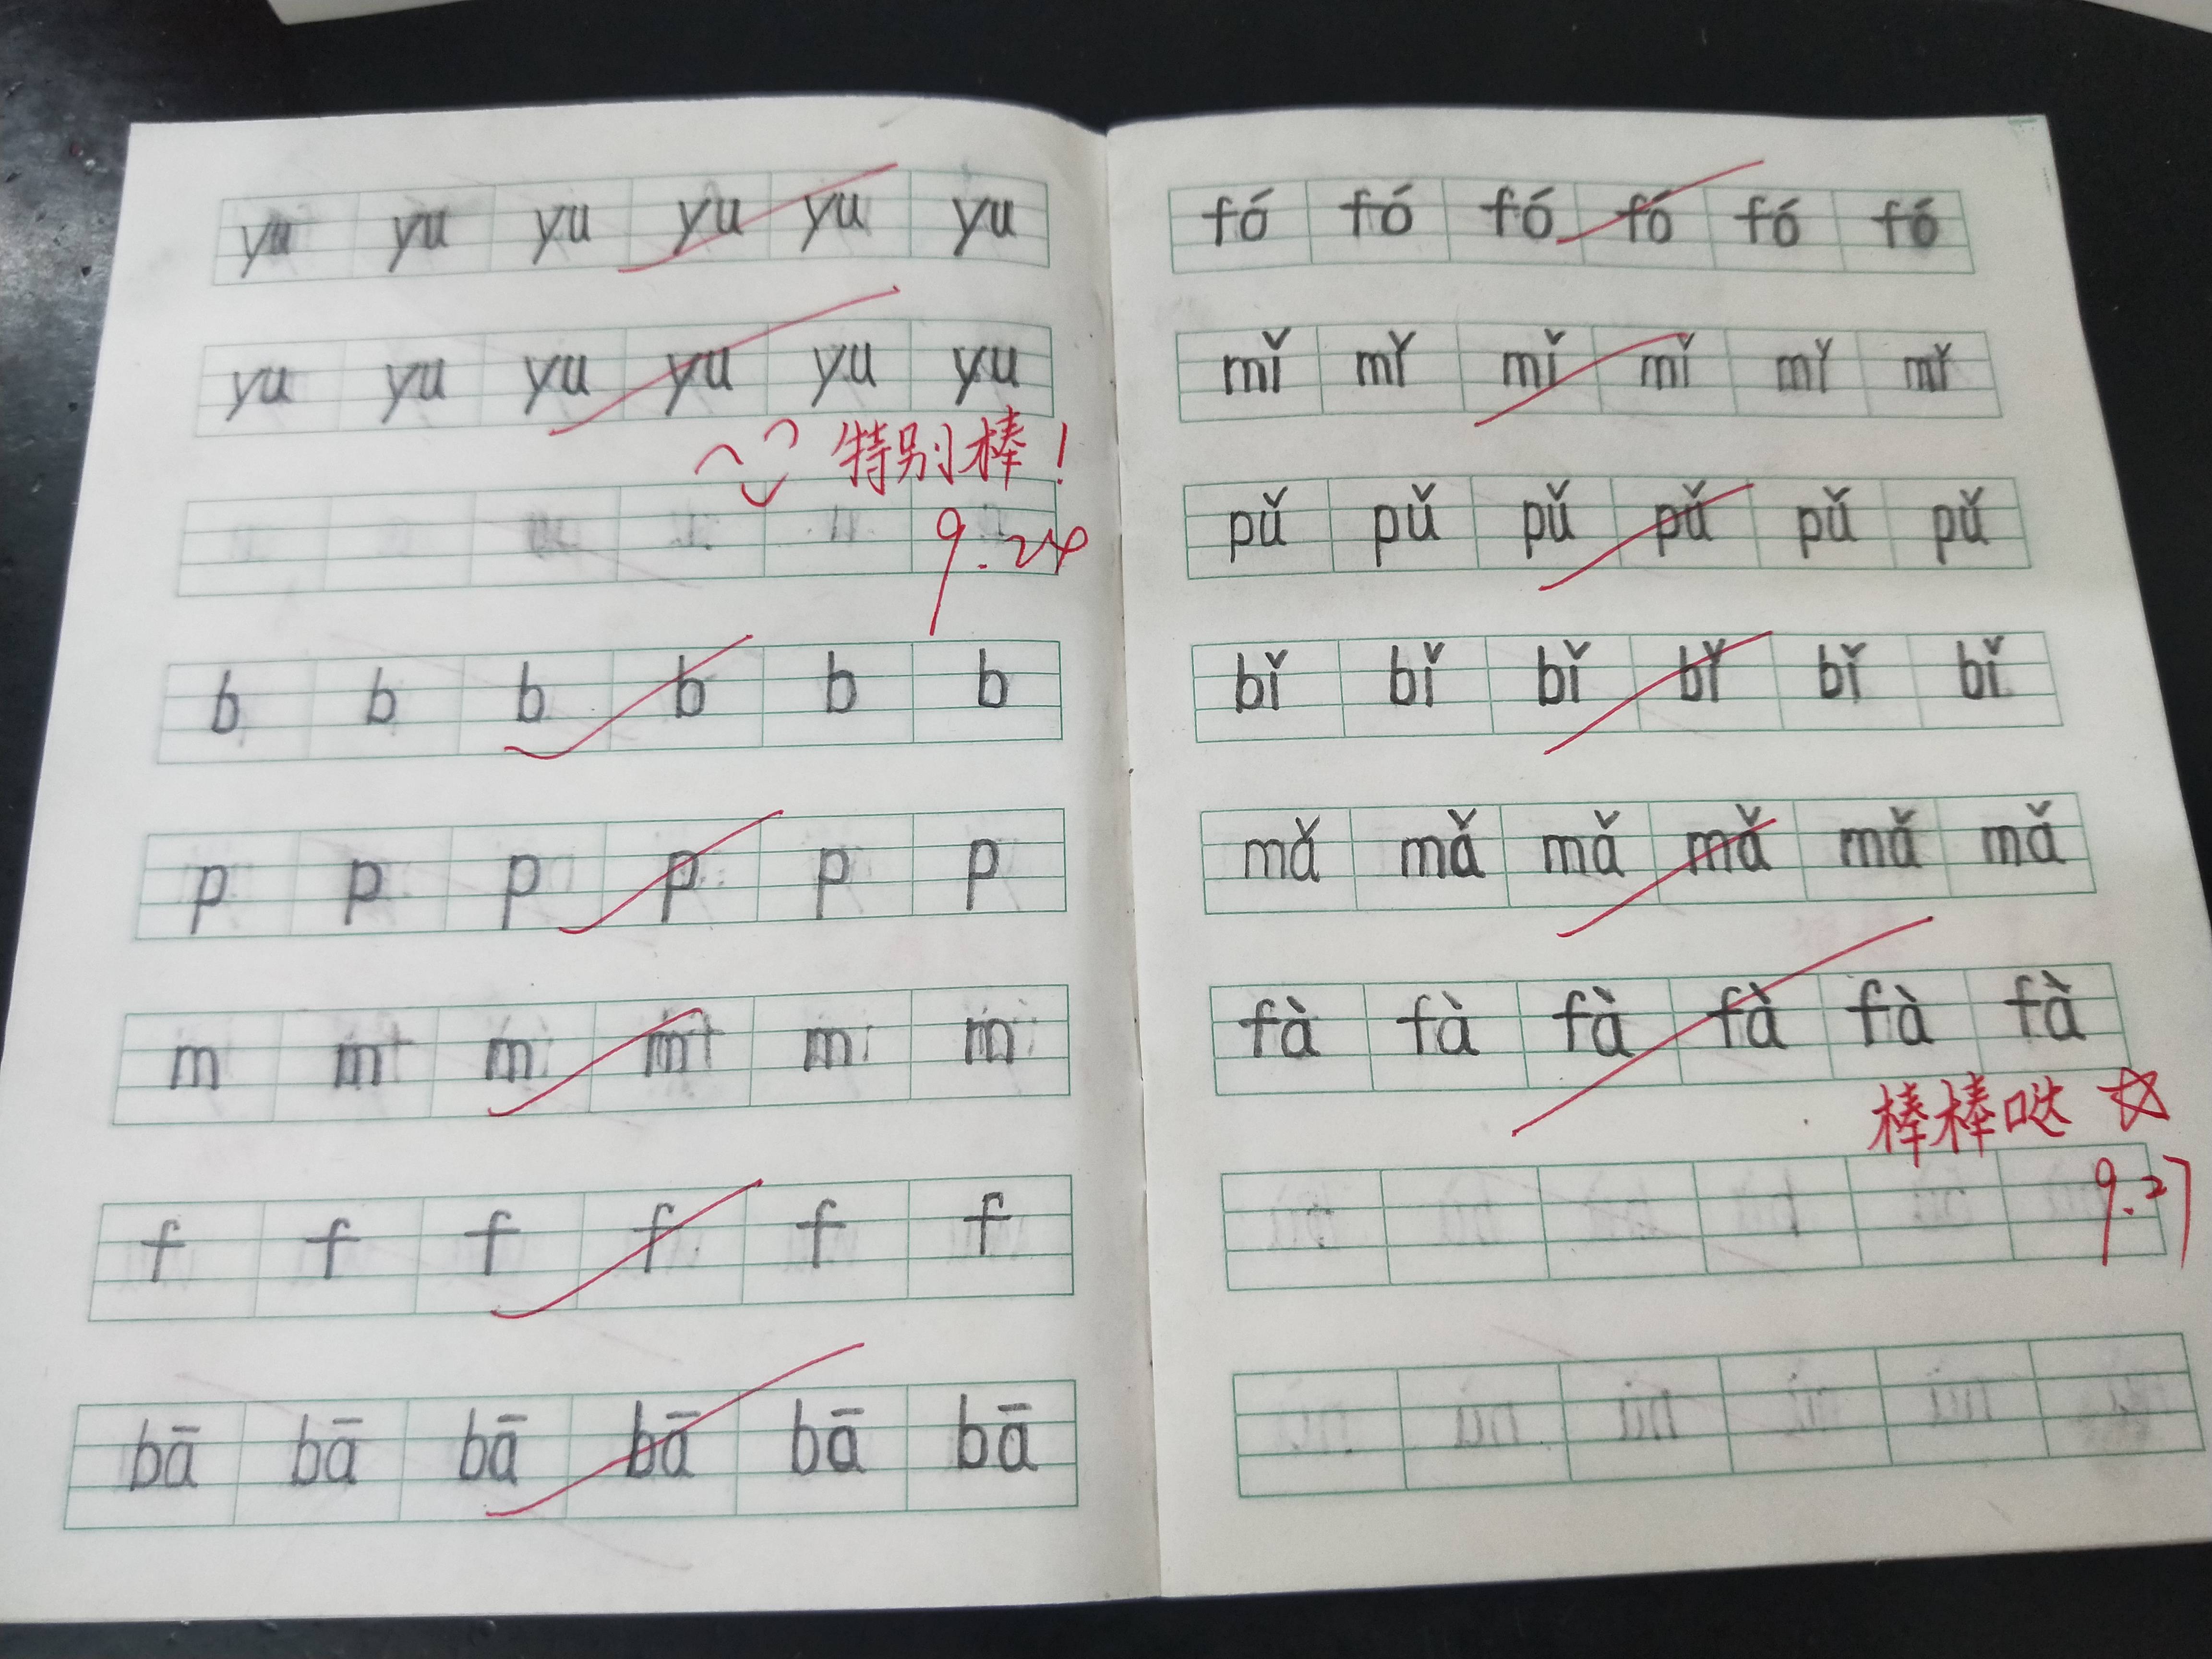 yu yu yu yu yu yu
yu yu yu yu yu yu
特别棒!
9.24
b b b b b b
p p p p p p
m m m m m m
f f f f f f
bā bā bā bā bā bā
fó fó fó fó fó fó
mǐ mǐ mǐ mǐ mǐ mǐ
pǔ pǔ pǔ pǔ pǔ pǔ
bǐ bǐ bǐ bǐ bǐ bǐ
mǎ mǎ mǎ mǎ mǎ mǎ
fà fà fà fà fà fà
棒棒哒 ☆
9.27